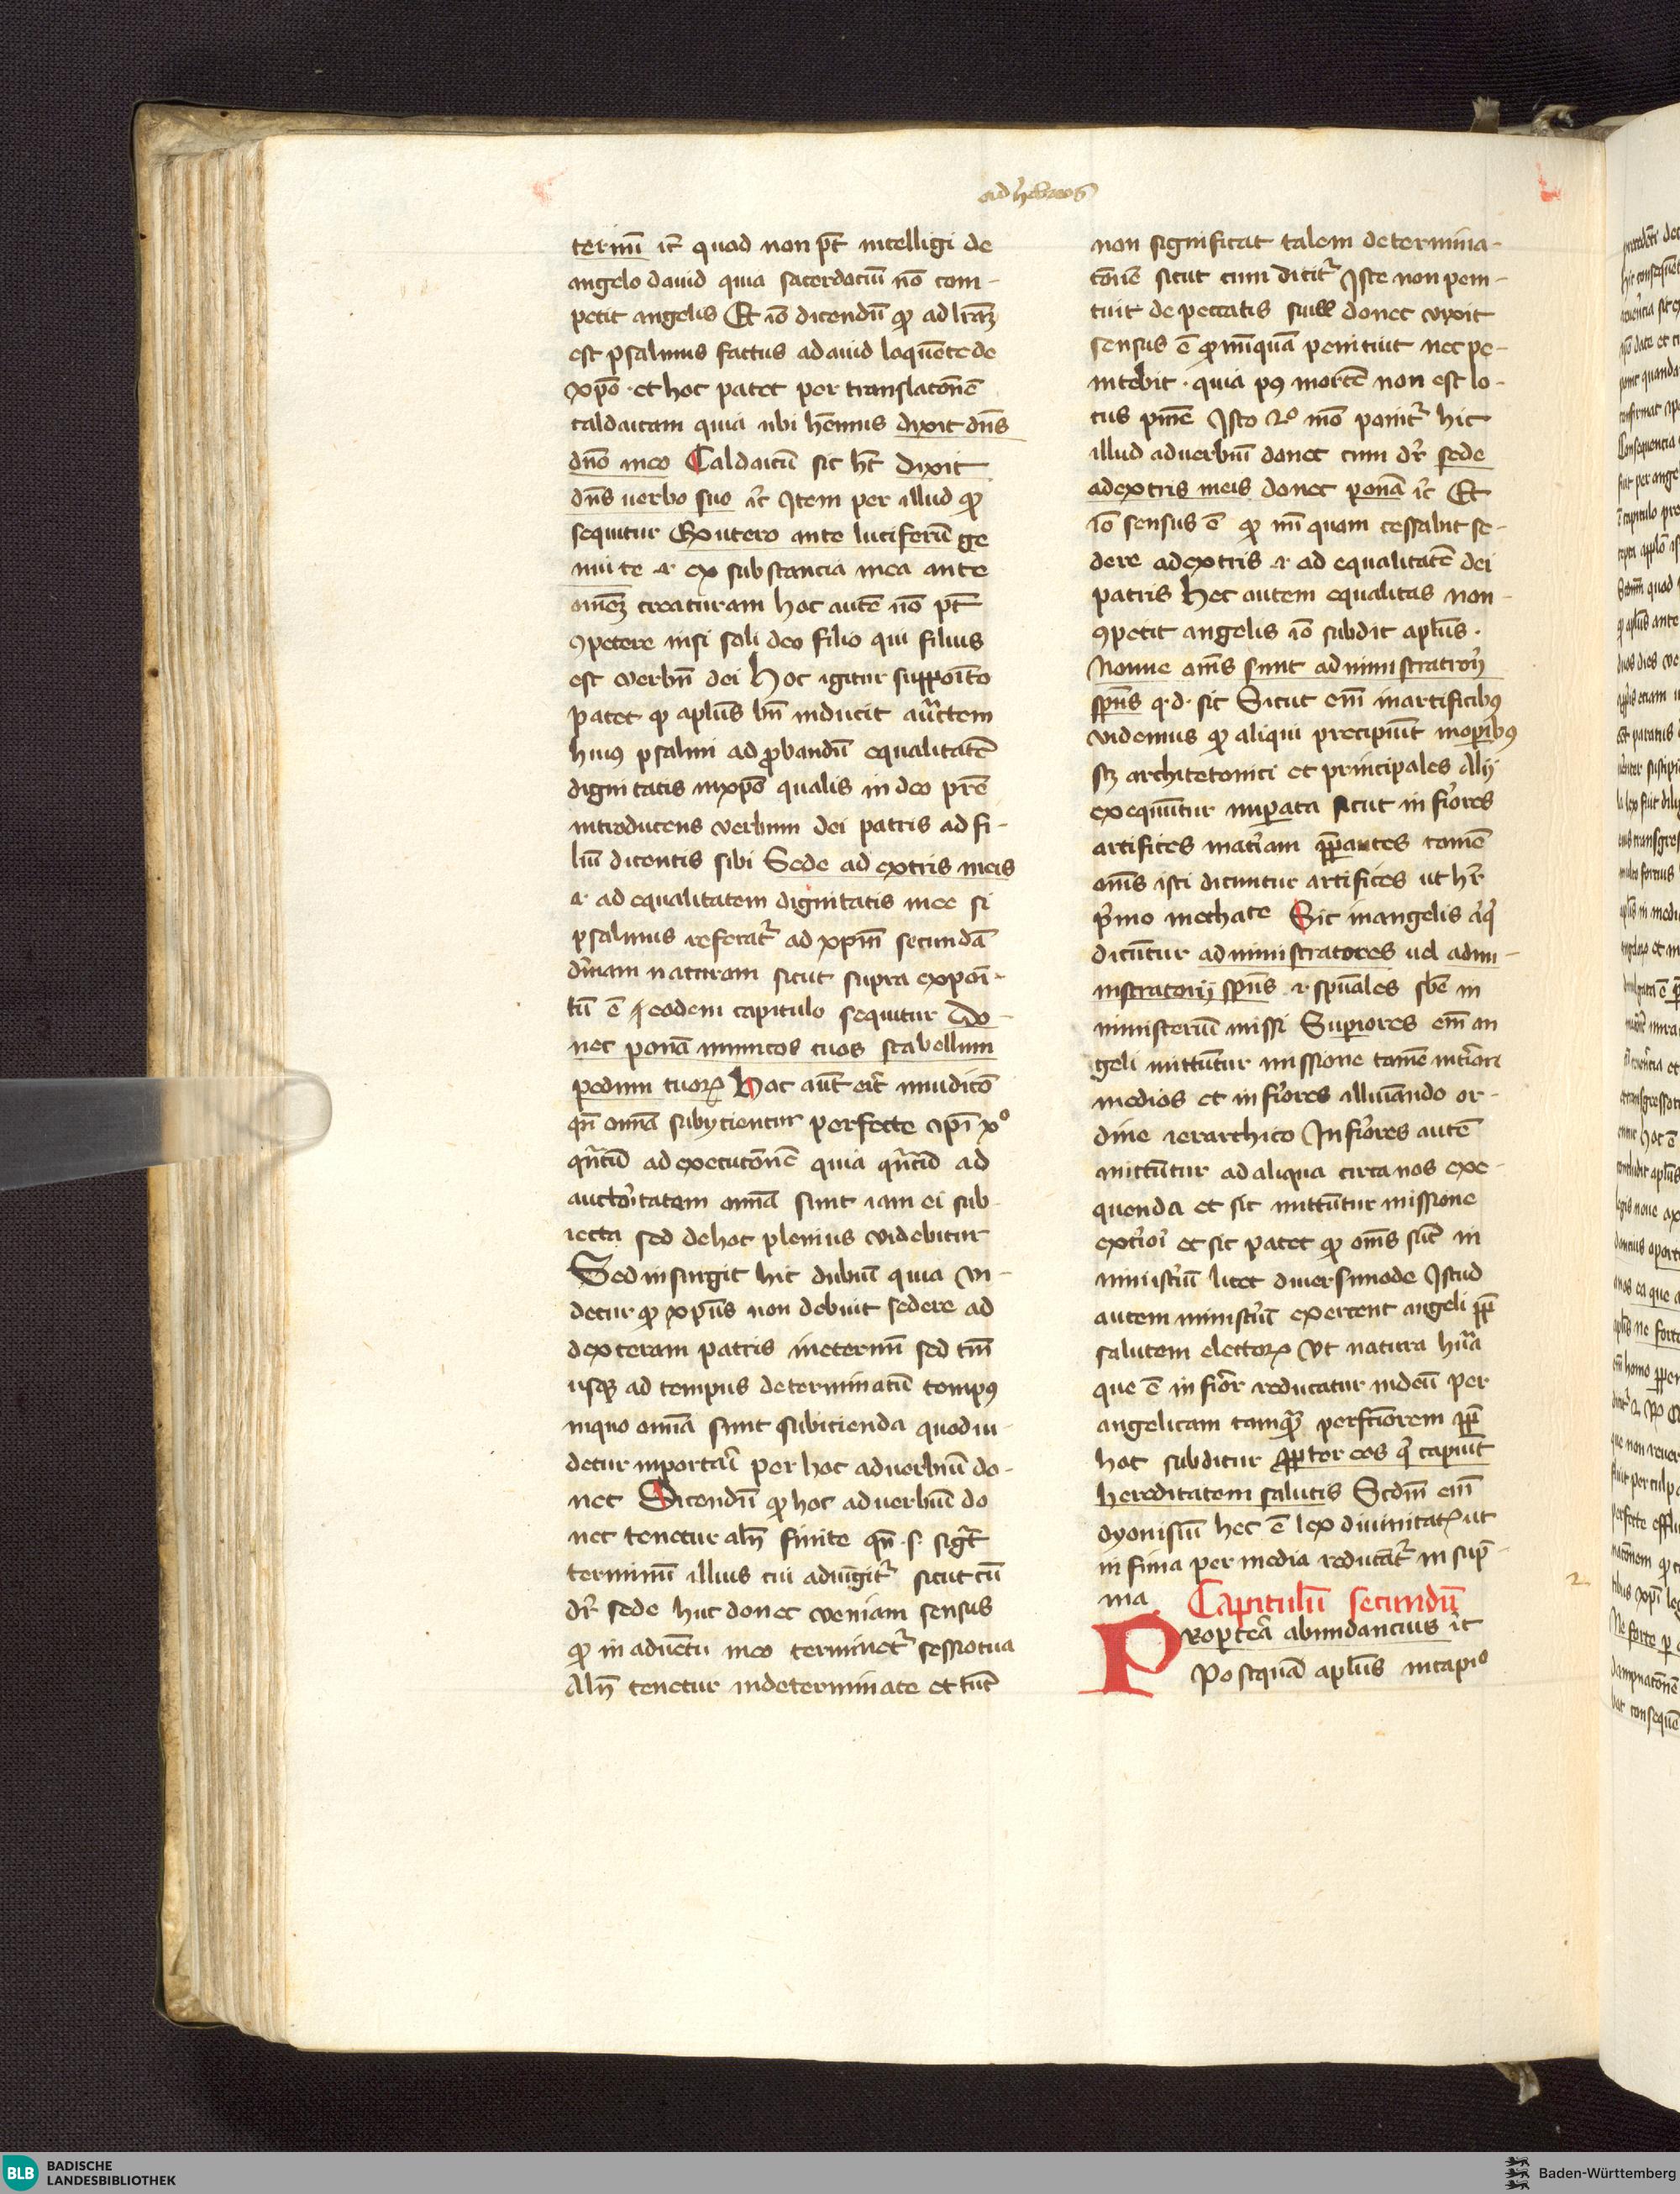 ad hebreos
ternū ⁊c̄ quod non pt̄ intelligi de
angelo dauid quia sacerdociū nō com-
petit angelis Et iō dicendū ꝙ ad lr̄aꝫ
est psalmus factus adauid loquēte de
xp̄o · et hoc patet per translatōnē
caldaicam quia ubi hēmus dixit dn̄s
dn̄o meo Caldaicū sic ht̄ dixit
dn̄s uerbo suo ⁊c̄ Item per illud ꝙ
sequitur Ex utero ante luciferū ge
nui te ·i· ex substancia mea ante
omēꝫ creaturam hoc autē nō pt̄
ꝯpetere nisi soli deo filio qui filius
est verbū dei Hoc igitur suppoīto
patet ꝙ apl̄us bn̄ inducit auc̄tem
huiꝰ psalmi ad ꝓbandū equalitatē
dignitatis in xp̄o qualis in deo pr̄e
introducens verbum dei patris ad fi-
liū dicentis sibi Sede ad extris meis
·i· ad equalitatem dignitatis mee si
psalmus referat᷑ ad xp̄m secundā
diuinam naturam sicut supra expoī-
tū ē eodem capitulo sequitur Do-
nec ponā inimicos tuos scabellum
pedum tuoꝝ Hoc aūt erit in iudicō
qn̄ omīa subycientur perfecte ip̄i xº
qn̄tū ad executōnē quia qn̄tū ad
auctoritatem omīa sunt iam ei sub-
iecta sed de hoc plenius videbitur
Sed insurgit hic dubiū quia vi-
detur ꝙ xp̄us non debuit sedere ad
dexteram patris in eternū sed tm̄
usqꝫ ad tempus determinatū tempꝰ
in quo omīa sunt subicienda quod ui-
detur inportari per hoc aduerbiū do-
nec Dicendū ꝙ hoc aduerbiū do
nec tenetur aln̄ finite qn̄ ·s· sigt̄
terminū illius cui adiūgit᷑ sicut cū
dr̄ sede huc donec veniam sensus
ꝙ in aduētu meo terminet᷑ sessio tua
Aln̄ tenetur indeterminate et tūc
non significat talem determina-
tōnē sicut cum dicit᷑ Iste non peni-
tuit de peccatis suis donec vixit
sensus ē ꝙ nūquā penituit nec pe-
nitebit · quia pꝰ mortē non est lo-
cus pnīe Isto 2º mō ponit᷑ hic
illud aduerbiū donec cum dr̄ sede
adextris meis donec ponā ⁊c̄ Et
iō sensus ē ꝙ nū quam cessabit se-
dere adextris ·i· ad equalitatē dei
patris Hec autem equalitas non
ꝯpetit angelis iō subdit apl̄us ·
Nonne oms̄ sunt administratorij
spūs q·d· sic Sicut em̄ in artificibꝰ
videmus ꝙ aliqui precipiūt in oꝑibꝰ
scꝫ architetonici et principales Alij
exequūtur imperata sicut inferiores
artifices materiam p̄parantes tamē
oms̄ isti dicuntur artifices ut hr̄
primo methace Sic in angelis aliqui
dicūtur administratores uel admi-
nistratorij spūs ·i· spūales sbē in
ministeriū missi Superiores em̄ an
geli mittūtur missione tamē interiori
medios et inferiores illuīando or-
dine ierarchico Inferiores autē
mittūtur ad aliqua circa nos exe-
quenda et sic mittūtur missione
exteriori et sic patet ꝙ oms̄ sūt in
ministeriū licet diuersimode Istud
autem ministeriū exercent angeli ꝓpt̄
salutem electoꝝ vt natura hūa
que ē inferior reducatur in deū per
angelicam tamqꝫ perfectiorem ꝓpt̄
hoc subditur ꝓpter eos qui capiūt
hereditatem salutis Scdm̄ em̄
dyonisiū hec ē lex diuinitatis ut
infima per media reducāt᷑ in supre-
ma Capitulū secundū
Propterea abundancius ⁊c̄
Postquā apl̄us in capiº
2
BLB BADISCHE
LANDESBIBLIOTHEK
Baden-Württemberg